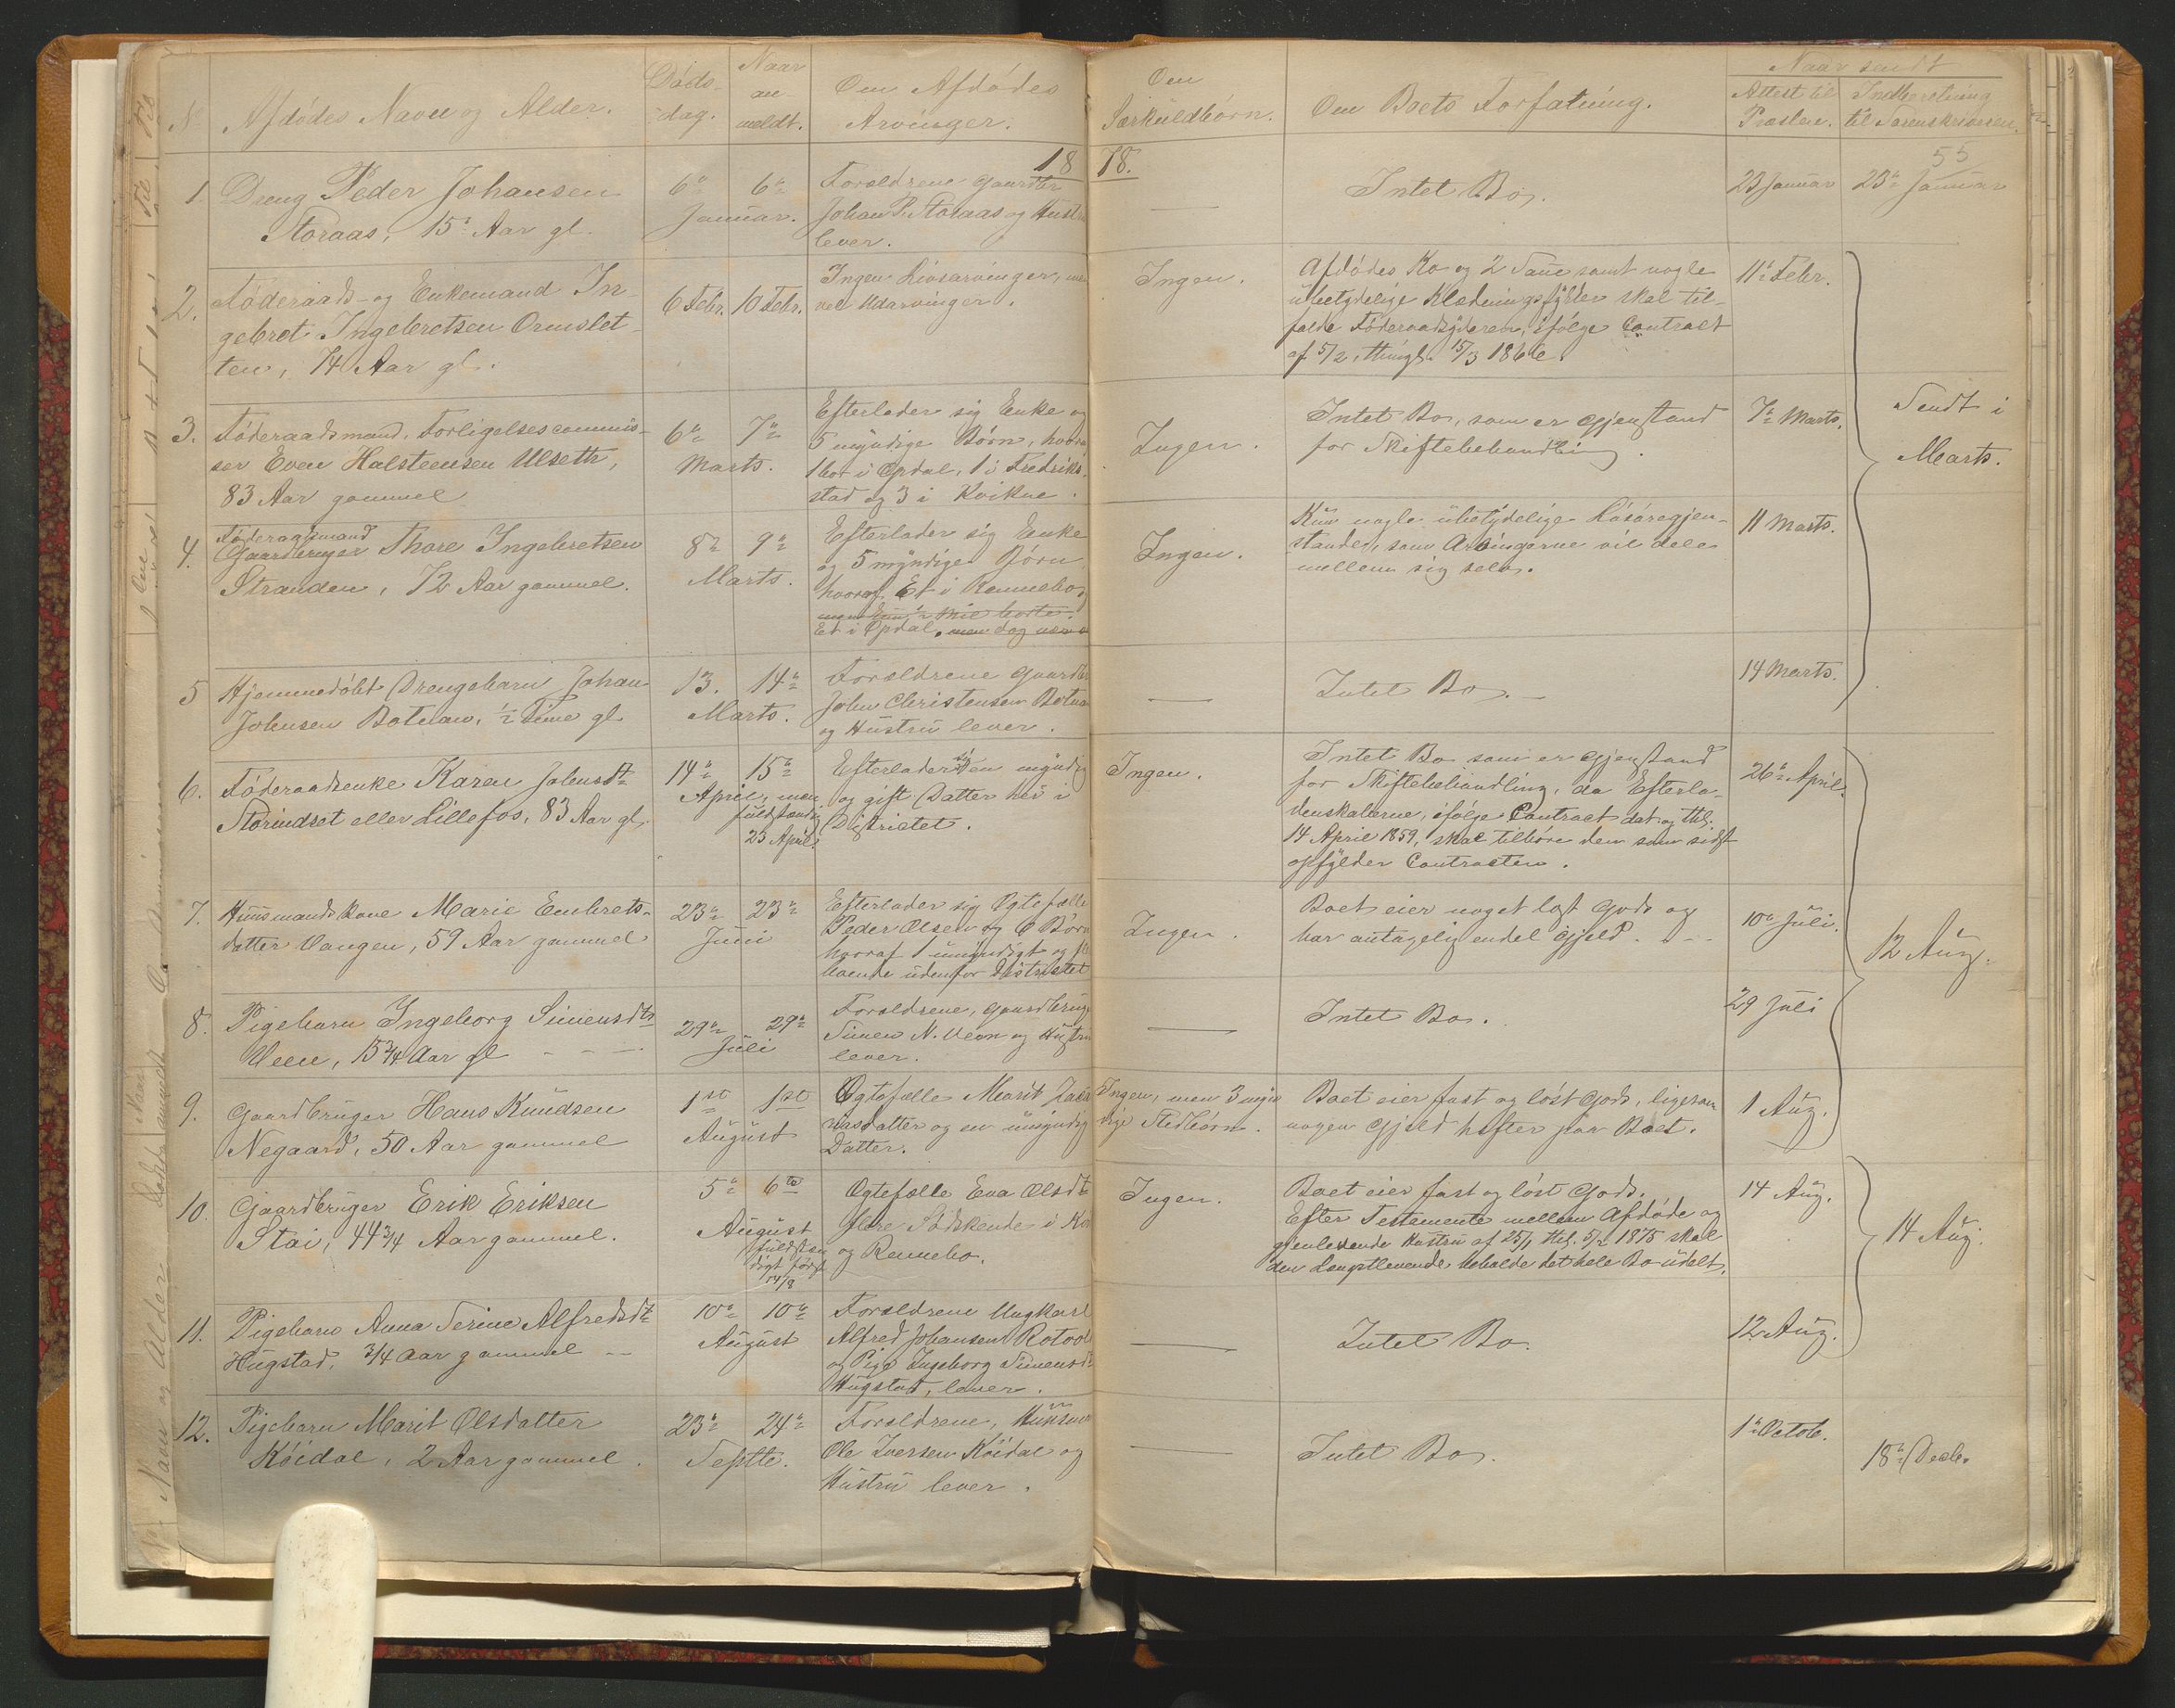 No Afdödes Navn og Alder.
Döds-
dag.
Naar
an-
meldt.
Om Afdödes
Arvinger.
Om
Særkuldbörn.
Om Boets Forfatning.
Naar sendt
Attest til
Præsten.
Indberetning
til Sorenskriveren.
1878.
55
1. Dreng Peder Johansen
Storaas, 15 Aar gl.
6te 6te
Januar.
Forældrene Gaardbr
Johan P. Storaas og Hustru
lever.
—
Intet Bo.
23 Januar
23de Januar
2. Föderaads- og Enkemand In-
gebret Ingebretsen Ormslet-
ten, 74 Aar gl.
6 Febr. 10 Febr.
Ingen Livsarvinger, men
vel Udarvinger.
Ingen.
Afdödes Ko og 2 Sauer samt nogle
ubetydelige Klædningsstykker skal til-
falde Föderaadsyderen, ifölge Contract
af 5/2, thingl. 15/3 1866.
11te Febr.
3. Föderaadsmand, Forligelsescommis-
sær Even Halsteensen Ulseth,
83 Aar gammel
6te 7de
Marts.
Efterlader sig Enke og
5 myndige Börn, hvoraf
1 bor i Opdal, 1 i Fredrik-
stad og 3 i Kvikne.
Ingen.
Intet Bo, som er Gjenstand
for Skiftebehandling.
7de Marts.
Sendt i
Marts.
4. Föderaadsmand
Gaardbruger Thore Ingebretsen
Stranden, 72 Aar gammel.
8de 9de
Marts.
Efterlader sig Enke
og 5 myndige Börn
hvoraf Et i Rennebo og
Et i Opdal,
Ingen.
Kun nogle ubetydelige Lösöregjen-
stande, som Arvingerne vil dele
mellem sig selv.
11 Marts.
5 Hjemmedöbt Drengebarn Johan
Johnsen Botnan, 1/2 Time gl.
13. 14de
Marts.
Forældrene Gaardbr
John Christensen Botnan
og Hustru lever.
—
Intet Bo. —
14 Marts.
6. Föderaadsenke Karen Johnsdt
Storindset eller Lillefos, 83 Aar gl.
14de 15de
April, men
fuldstændig
23 April.
Efterlader sig en myndig
og gift Datter her i
Distrietet.
Ingen.
Intet Bo som er Gjenstand
for Skiftebehandling, da Efterla-
denskaberne, ifölge Contract dat. og thl.
14 April 1859, skal tilhöre den som sidst
opfylder Contracten.
26de April.
7. Huusmandskone Marie Embrets-
datter Vangen, 59 Aar gammel
23de 23de
Juni
Efterlader sig Ægtefælle
Peder Olsen og 6 Börn
hvoraf 1 umyndigt og
boende udenfor Distriktet
Ingen.
Boet eier noget löst Gods og
har antagelig endel Gjæld.
10de Juli.
12 Aug.
8. Pigebarn Ingeborg Simensdtr
Veen, 15 3/4 Aar gl
29de 29de
Juli
Forældrene, Gaardbruger
Simen N. Veen og Hustru
lever.
—
Intet Bo.
29 Juli
9. Gaardbruger Hans Knudsen
Negaard, 50 Aar gammel
1ste 1ste
August
Ægtefælle Marit
datter og en umyndig
Datter.
Ingen, men 3 myn-
dige Stedbörn.
Boet eier fast og löst Gods, ligesom
nogen Gjæld hefter paa Boet.
1 Aug.
10 Gaardbruger Erik Eriksen
Stai, 44 3/4 Aar gammel.
5te 6te
August
fuldstæn-
digt først
14/8
Ægtefælle Eva Olsdt
flere Södskende i
og Rennebo.
Ingen.
Boet eier fast og löst Gods.
Efter Testemente mellem Afdöde og
gjenlevende Hustru af 25/1 thl. 5/2 1875 skal
den Længstlevende beholde det hele Bo udelt.
14 Aug.
14 Aug.
11. Pigebarn Anna Serine Alfredsdt
Hugstad, 3/4 Aar gammel
10de 10de
August
Forældrene Ungkarl
Alfred Johansen
og Pige Ingeborg Simensdt
Hugstad, lever.
—
Intet Bo.
12 Aug.
12. Pigebarn Marit Olsdatter
Köidal, 2 Aar gammel.
23de 24de
Septbr.
Forældrene, Husm
Ole Iversen Köidal og
Hustru lever.
—
Intet Bo.
1ste Octob.
18de Decbr.